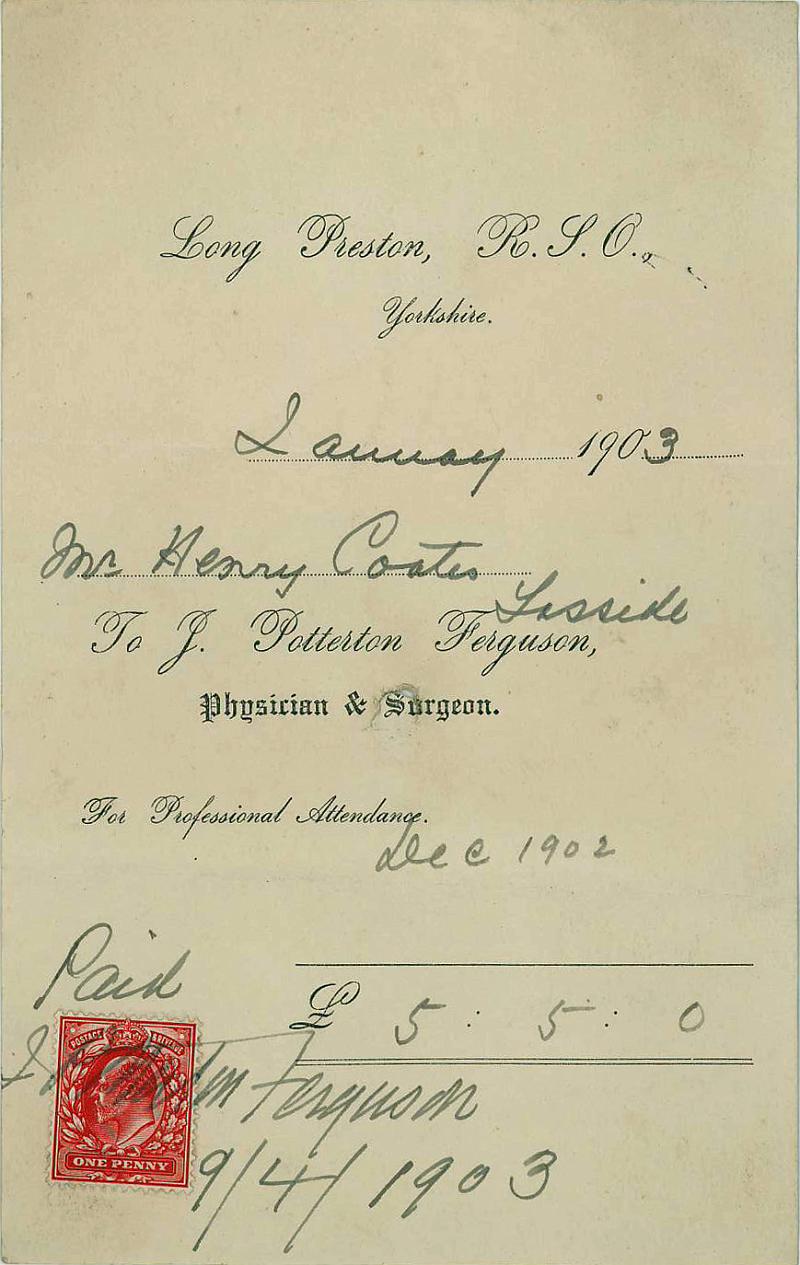 Long Preston, R.S.O.,
Yorkshire.
January 1903
Mr Henry Coates
To J. Potterton Ferguson,
Physician & Surgeon.
For Professional Attendance.
Dec 1902
Paid
£ 5 : 5 : 0
POSTAGE REVENUE
Ferguson
ONE PENNY
9/4/1903